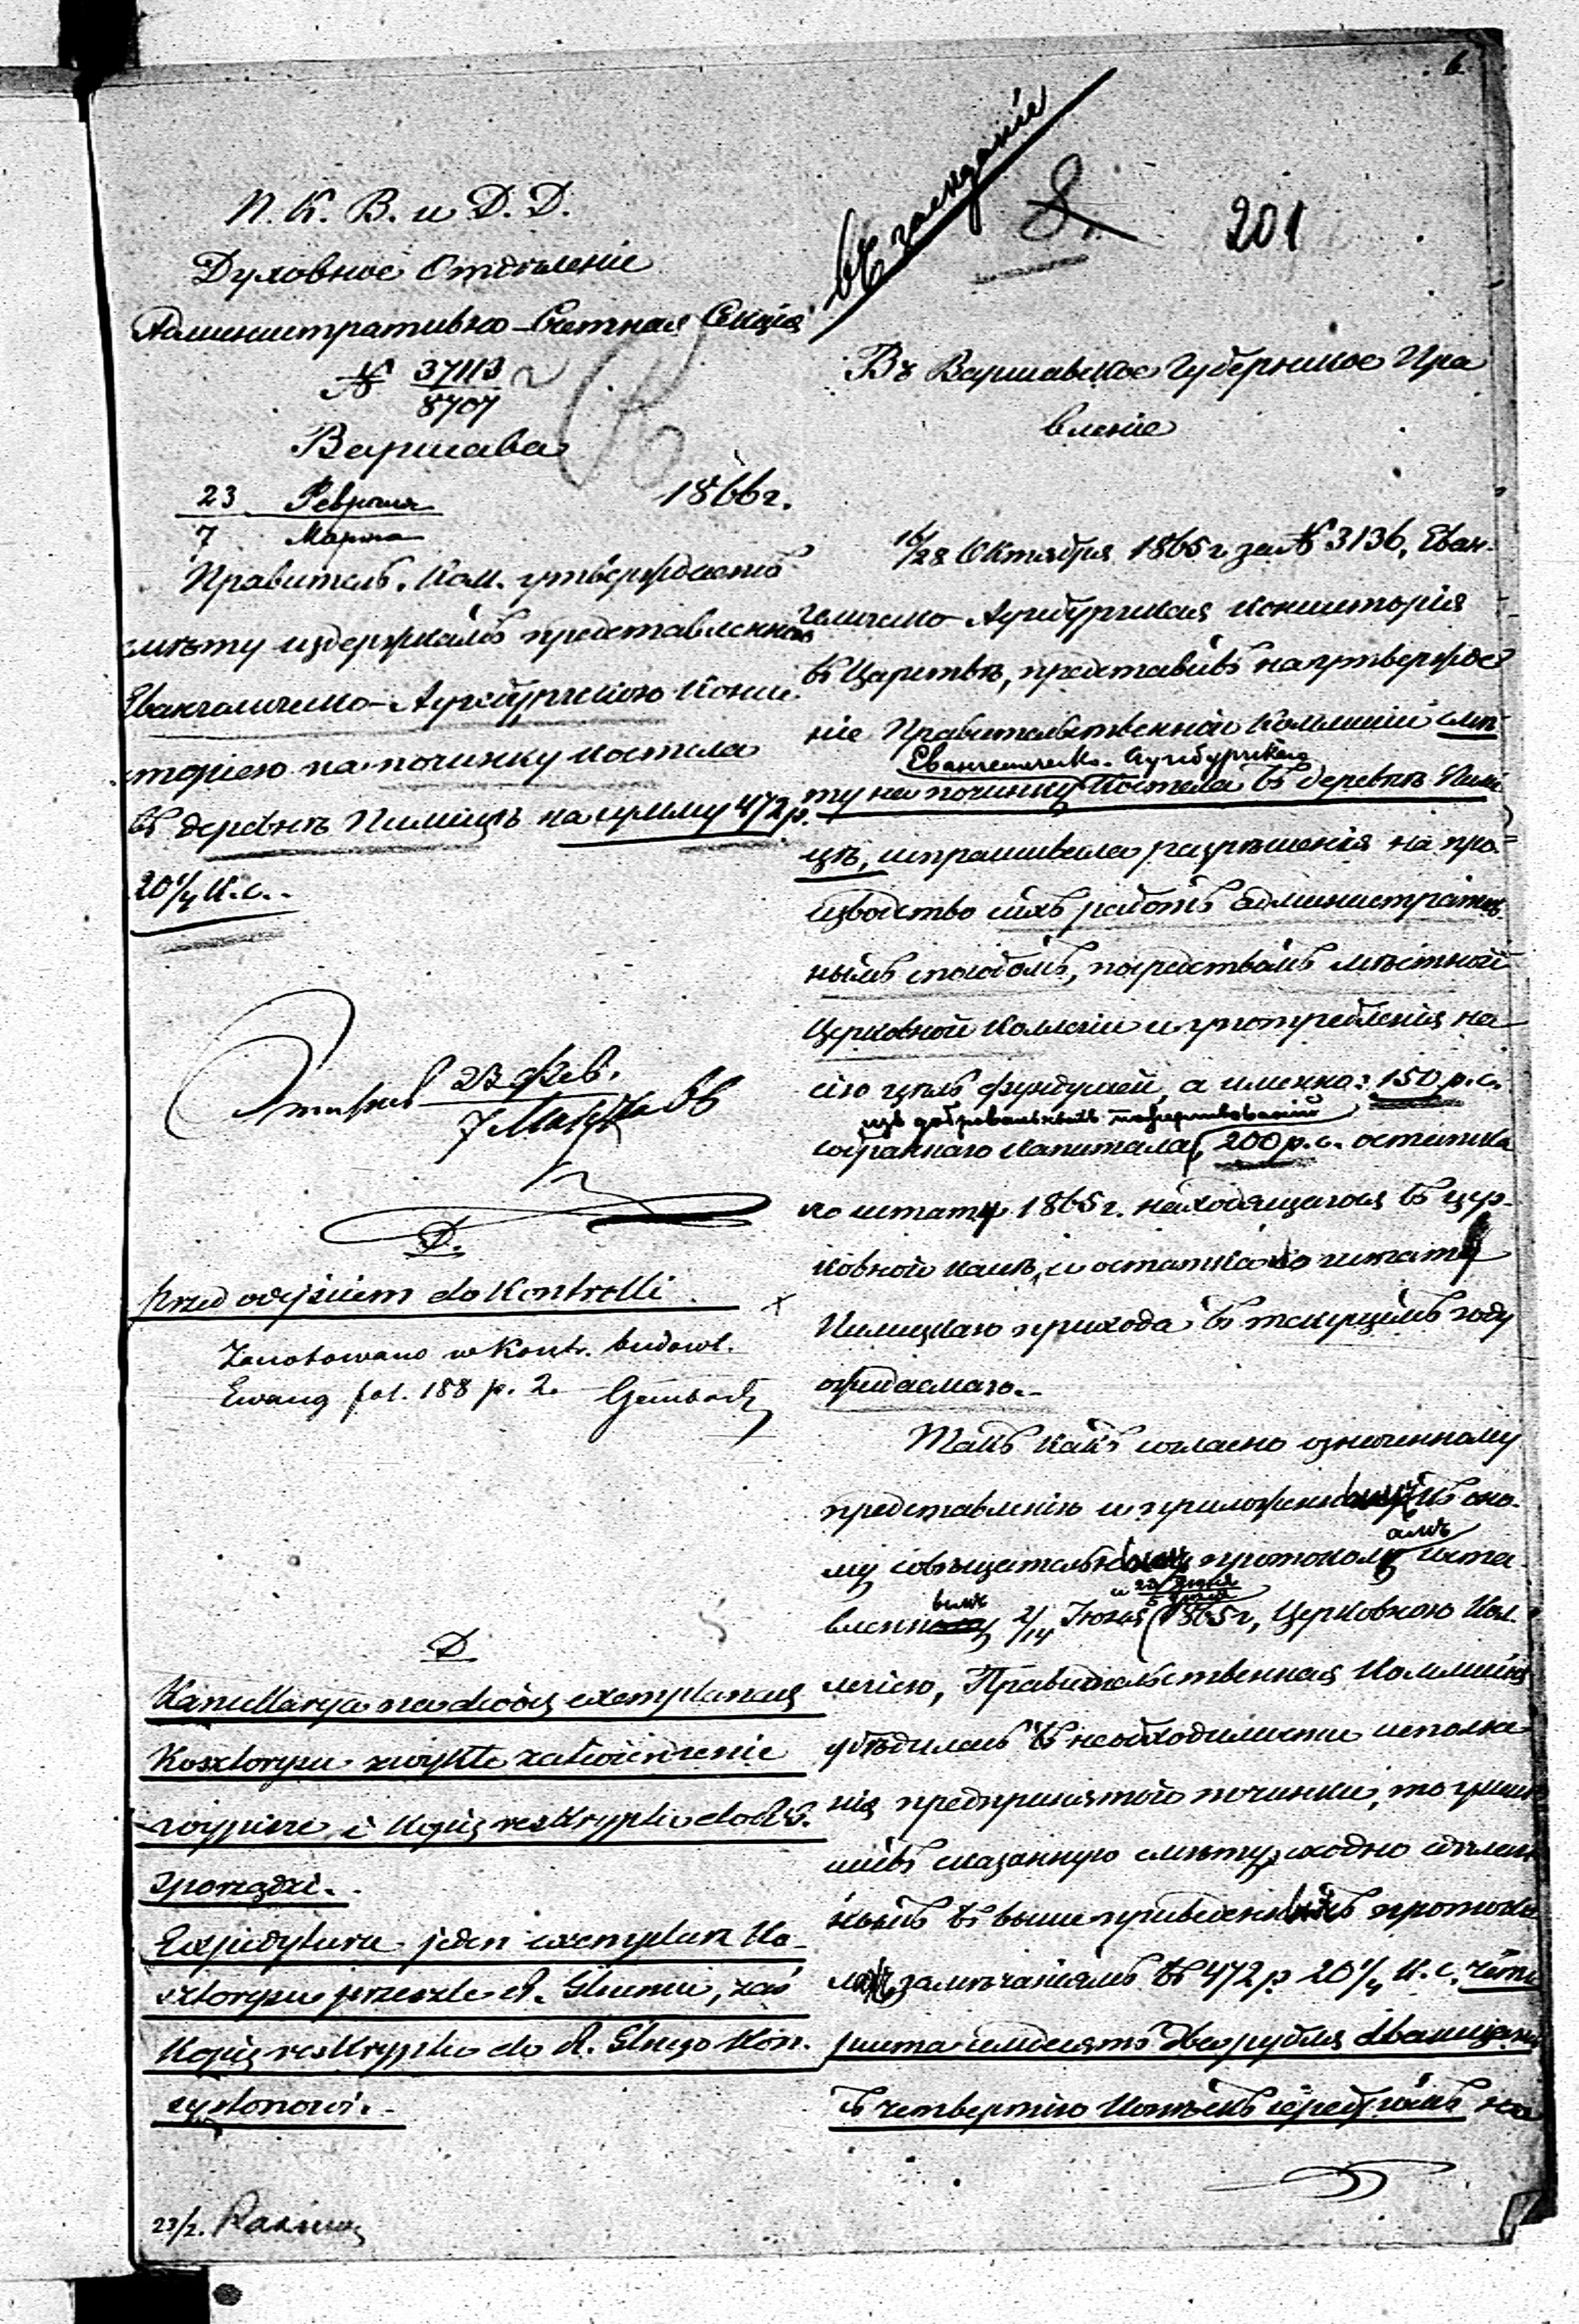 6
Въ заседаніе
8.
201
П. К. В. и Д. Д.
Духовное Отдѣленіе
Административно-Счетная Секція
№ 37113/8707
Варшава
23 Февраля / 7 Марта 1866 г.
Правитель. Ком. утверждаетъ
смѣту издержкамъ представленную
Евангелическо-Аугсбургскою Конси-
сторіею на починку костела
въ деревнѣ Пилицѣ на сумму 472 р.
20 1/4 к. с.
23 Фев.
7 Марта 66
D.
przed odejściem do Kontrolli
Zanotowano w Kontr. budowl.
Ewang fol. 188 p. 2.
D
Kancellarya na dwóch exemplarzach
Kosztorysu zwykłe zatwierdzenie
wypisze i Kopię reskryptu do
sporządzi.
Expedytura jeden exemplarz Ko-
sztorysu prześle R. Gbermu, zaś
Kopię reskryptu do R. Glnego Kon-
systorowi.
23/2.
Въ Варшавское Губернское Пра
вленіе
16/28 Октября 1865 г. за № 3136, Еван-
гелическо-Аугсбургская Консисторія
въ Царствѣ, представивъ на утвержде
ніе Правительственной Коммисіи смѣ
ту на починку Евангелическо-Аугсбургскаго Костела въ деревнѣ Пили
цѣ, испрашивала разрѣшенія на про-
изводство сихъ работъ административ
нымъ способомъ, посредствомъ мѣстной
Церковной Коллегіи и употребленія на
сію цѣль фундушей, а именно: 150 р. с.
собраннаго изъ добровольныхъ пожертвованій капитала, 200 р. с. остатка
по штату 1865 г. находящагося въ цер-
ковной кассѣ, и остатка по штату
Пилицкаго прихода въ текущемъ году
ожидаемаго.
Такъ какъ согласно означенному
представленію и приложеннымъ къ оно-
му совѣщательнымъ протоколамъ соста
вленнымъ 2/14 Іюня и 23 Іюня/5 Іюля 1865 г., Церковною Кол-
легіею, Правительственная Коммисія
убѣдилась въ необходимости исполне
нія предпринятой починки, то
сивъ сказанную смѣту, сходно сдѣлан
нымъ въ вышеприведенныхъ протоко
лахъ замѣчаніямъ въ 472 р. 20 1/4 к. с. четы
риста семдесятъ два рубля двадцать
съ четвертью копѣекъ серебромъ на